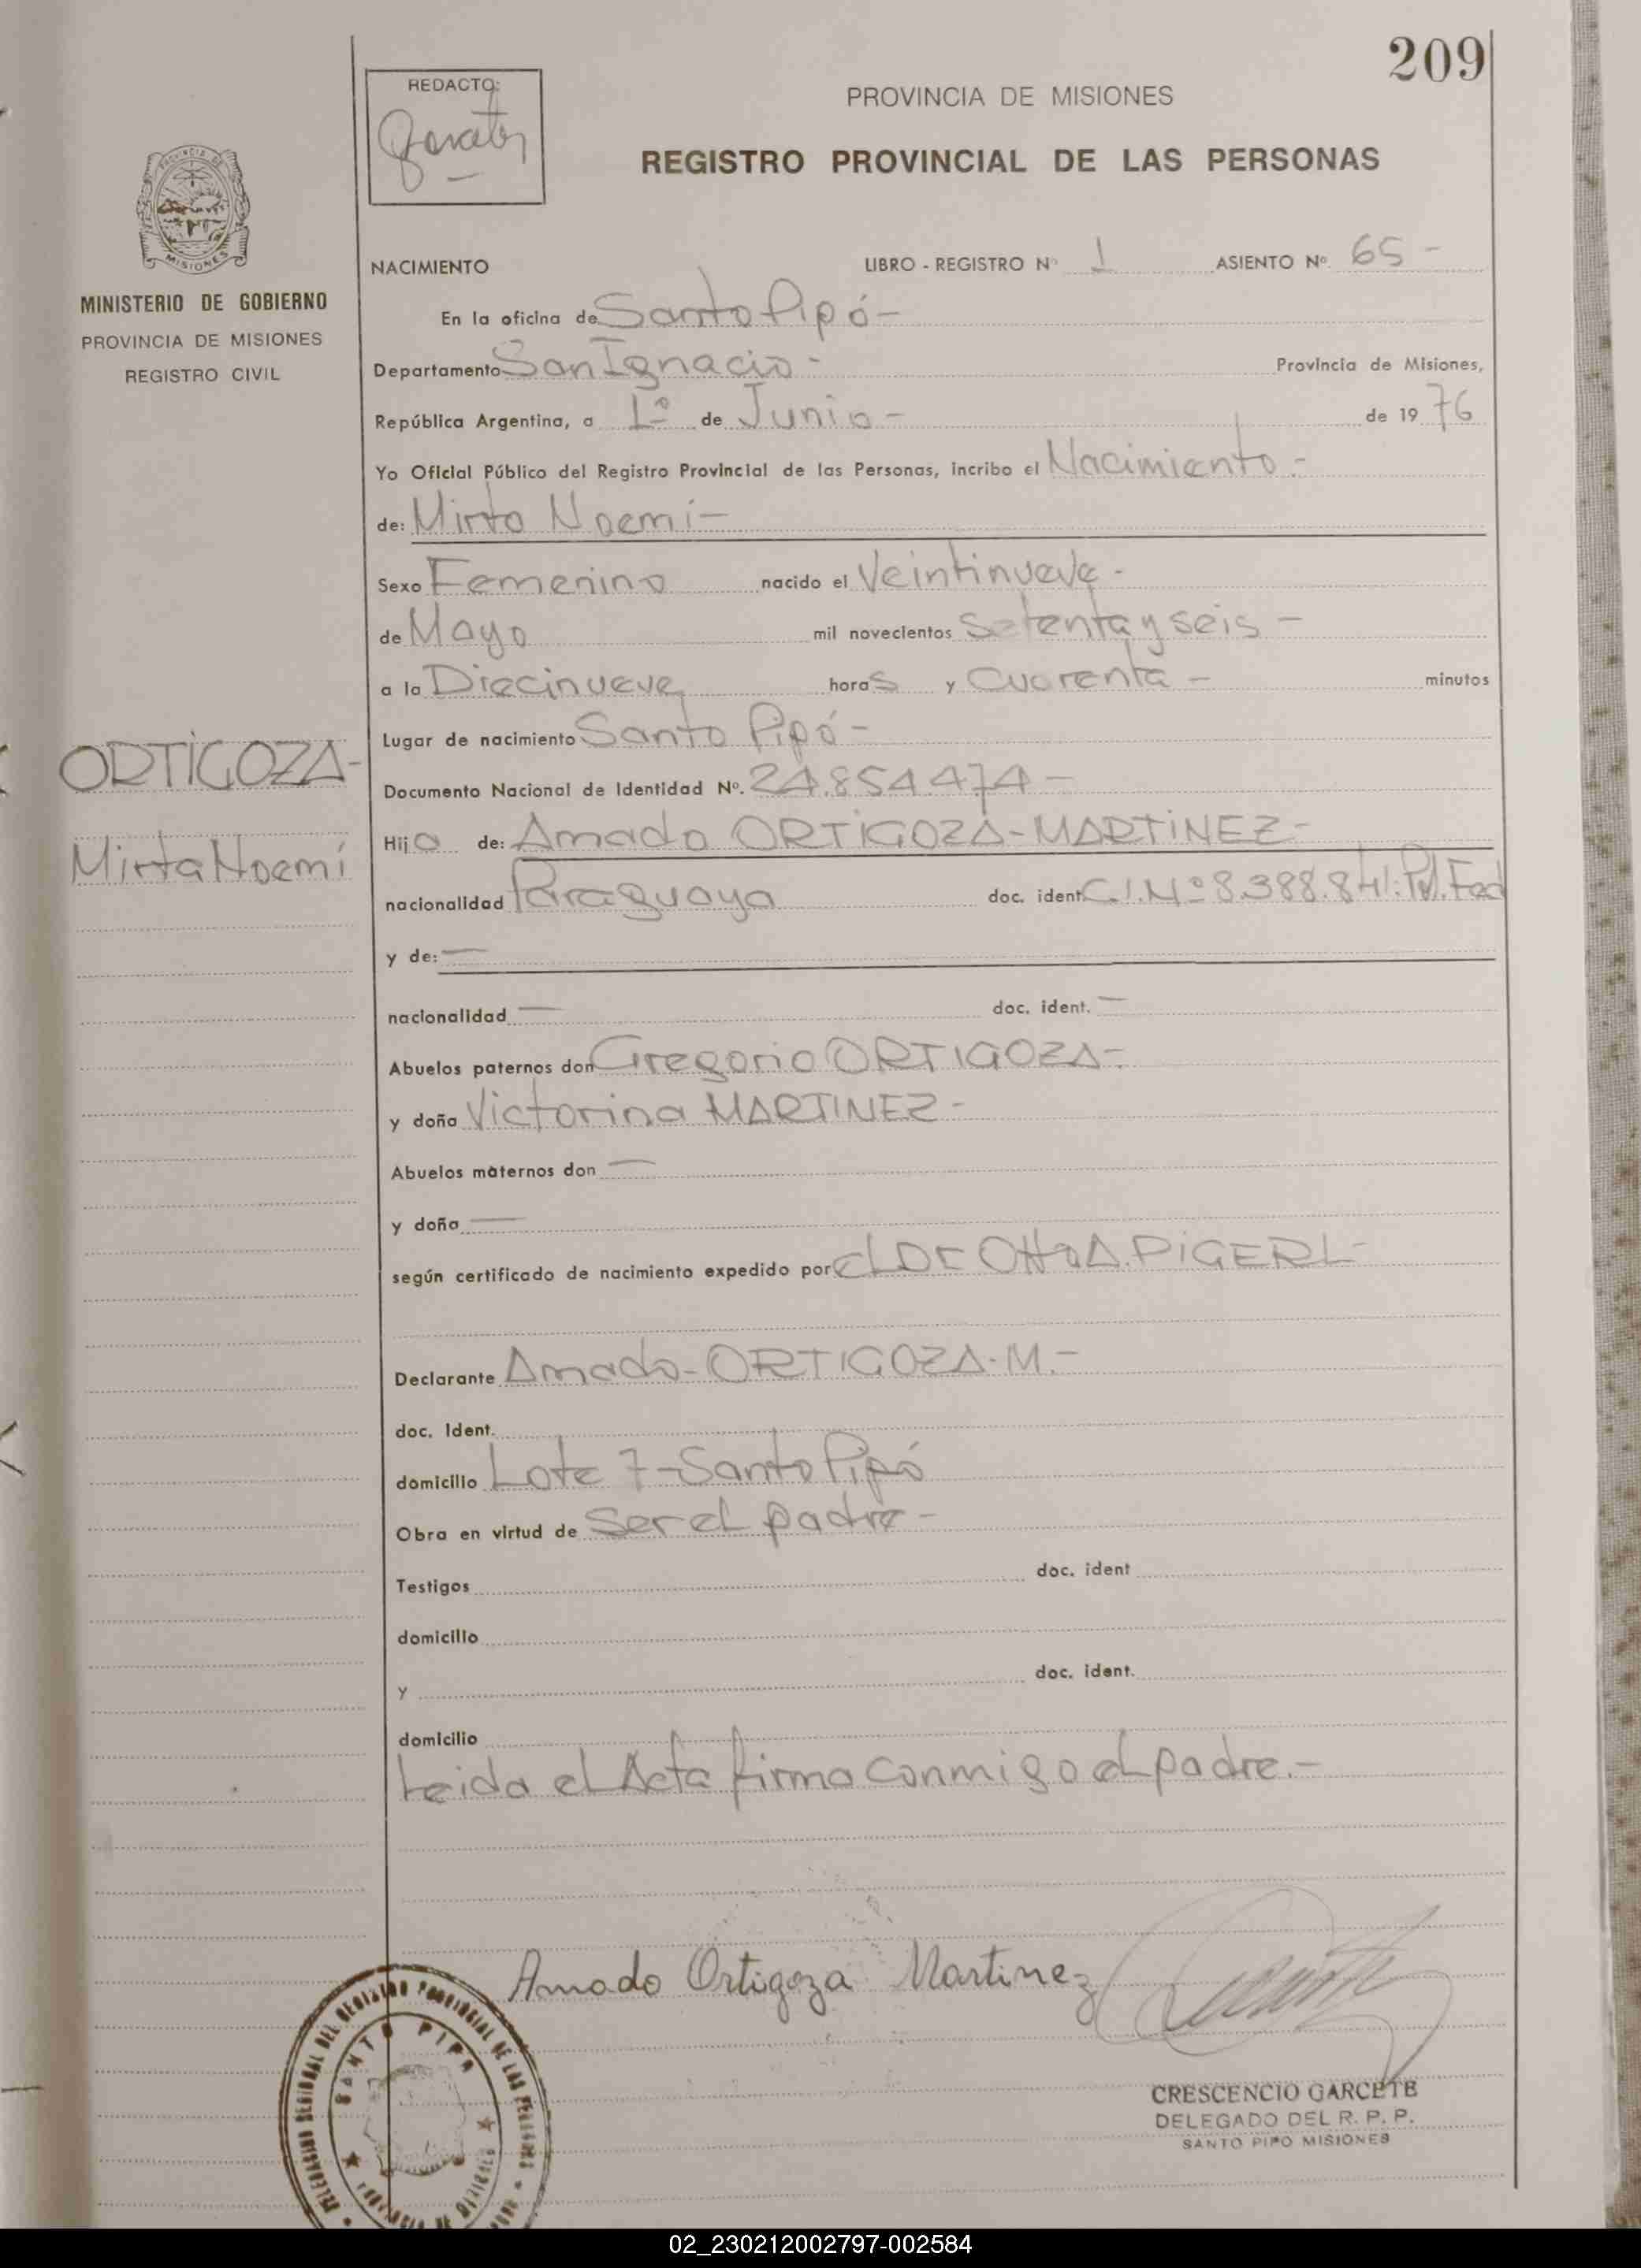 209
REDACTO:
PROVINCIA DE MISIONES
REGISTRO PROVINCIAL DE LAS PERSONAS
MISIONES
MINISTERIO DE GOBIERNO
PROVINCIA DE MISIONES
REGISTRO CIVIL
NACIMIENTO LIBRO - REGISTRO Nº 1 ASIENTO Nº 65 -
En la oficina de Santo Pipó -
Departamento San Ignacio - Provincia de Misiones,
República Argentina, a 1º de Junio - de 1976
Yo Oficial Público del Registro Provincial de las Personas, incribo el Nacimiento -
de: Mirta Noemí -
Sexo Femenino nacido el Veintinueve -
de Mayo mil novecientos setenta y seis -
a la Diecinueve horas y Cuarenta - minutos
Lugar de nacimiento Santo Pipó -
ORTIGOZA -
Documento Nacional de Identidad Nº. 24.854.474 -
Mirta Noemí
Hija de: Amado ORTIGOZA - MARTINEZ -
nacionalidad Paraguaya doc. ident. C.I. Nº 8.388.841: Pol. Fed
y de: —
nacionalidad — doc. ident. —
Abuelos paternos don Gregorio ORTIGOZA -
y doña Victorina MARTINEZ -
Abuelos maternos don —
y doña —
según certificado de nacimiento expedido por el Dr A. PIGERL -
Declarante Amado - ORTIGOZA - M. -
doc. Ident.
domicilio Lote 7 - Santo Pipó
Obra en virtud de Ser el padre -
Testigos doc. ident
domicilio
y doc. ident.
domicilio
Leida el Acta firma conmigo el padre. -
Amado Ortigoza Martinez
SANTO PIPO
CRESCENCIO GARCETE
DELEGADO DEL R. P. P.
SANTO PIPO MISIONES
02_230212002797-002584